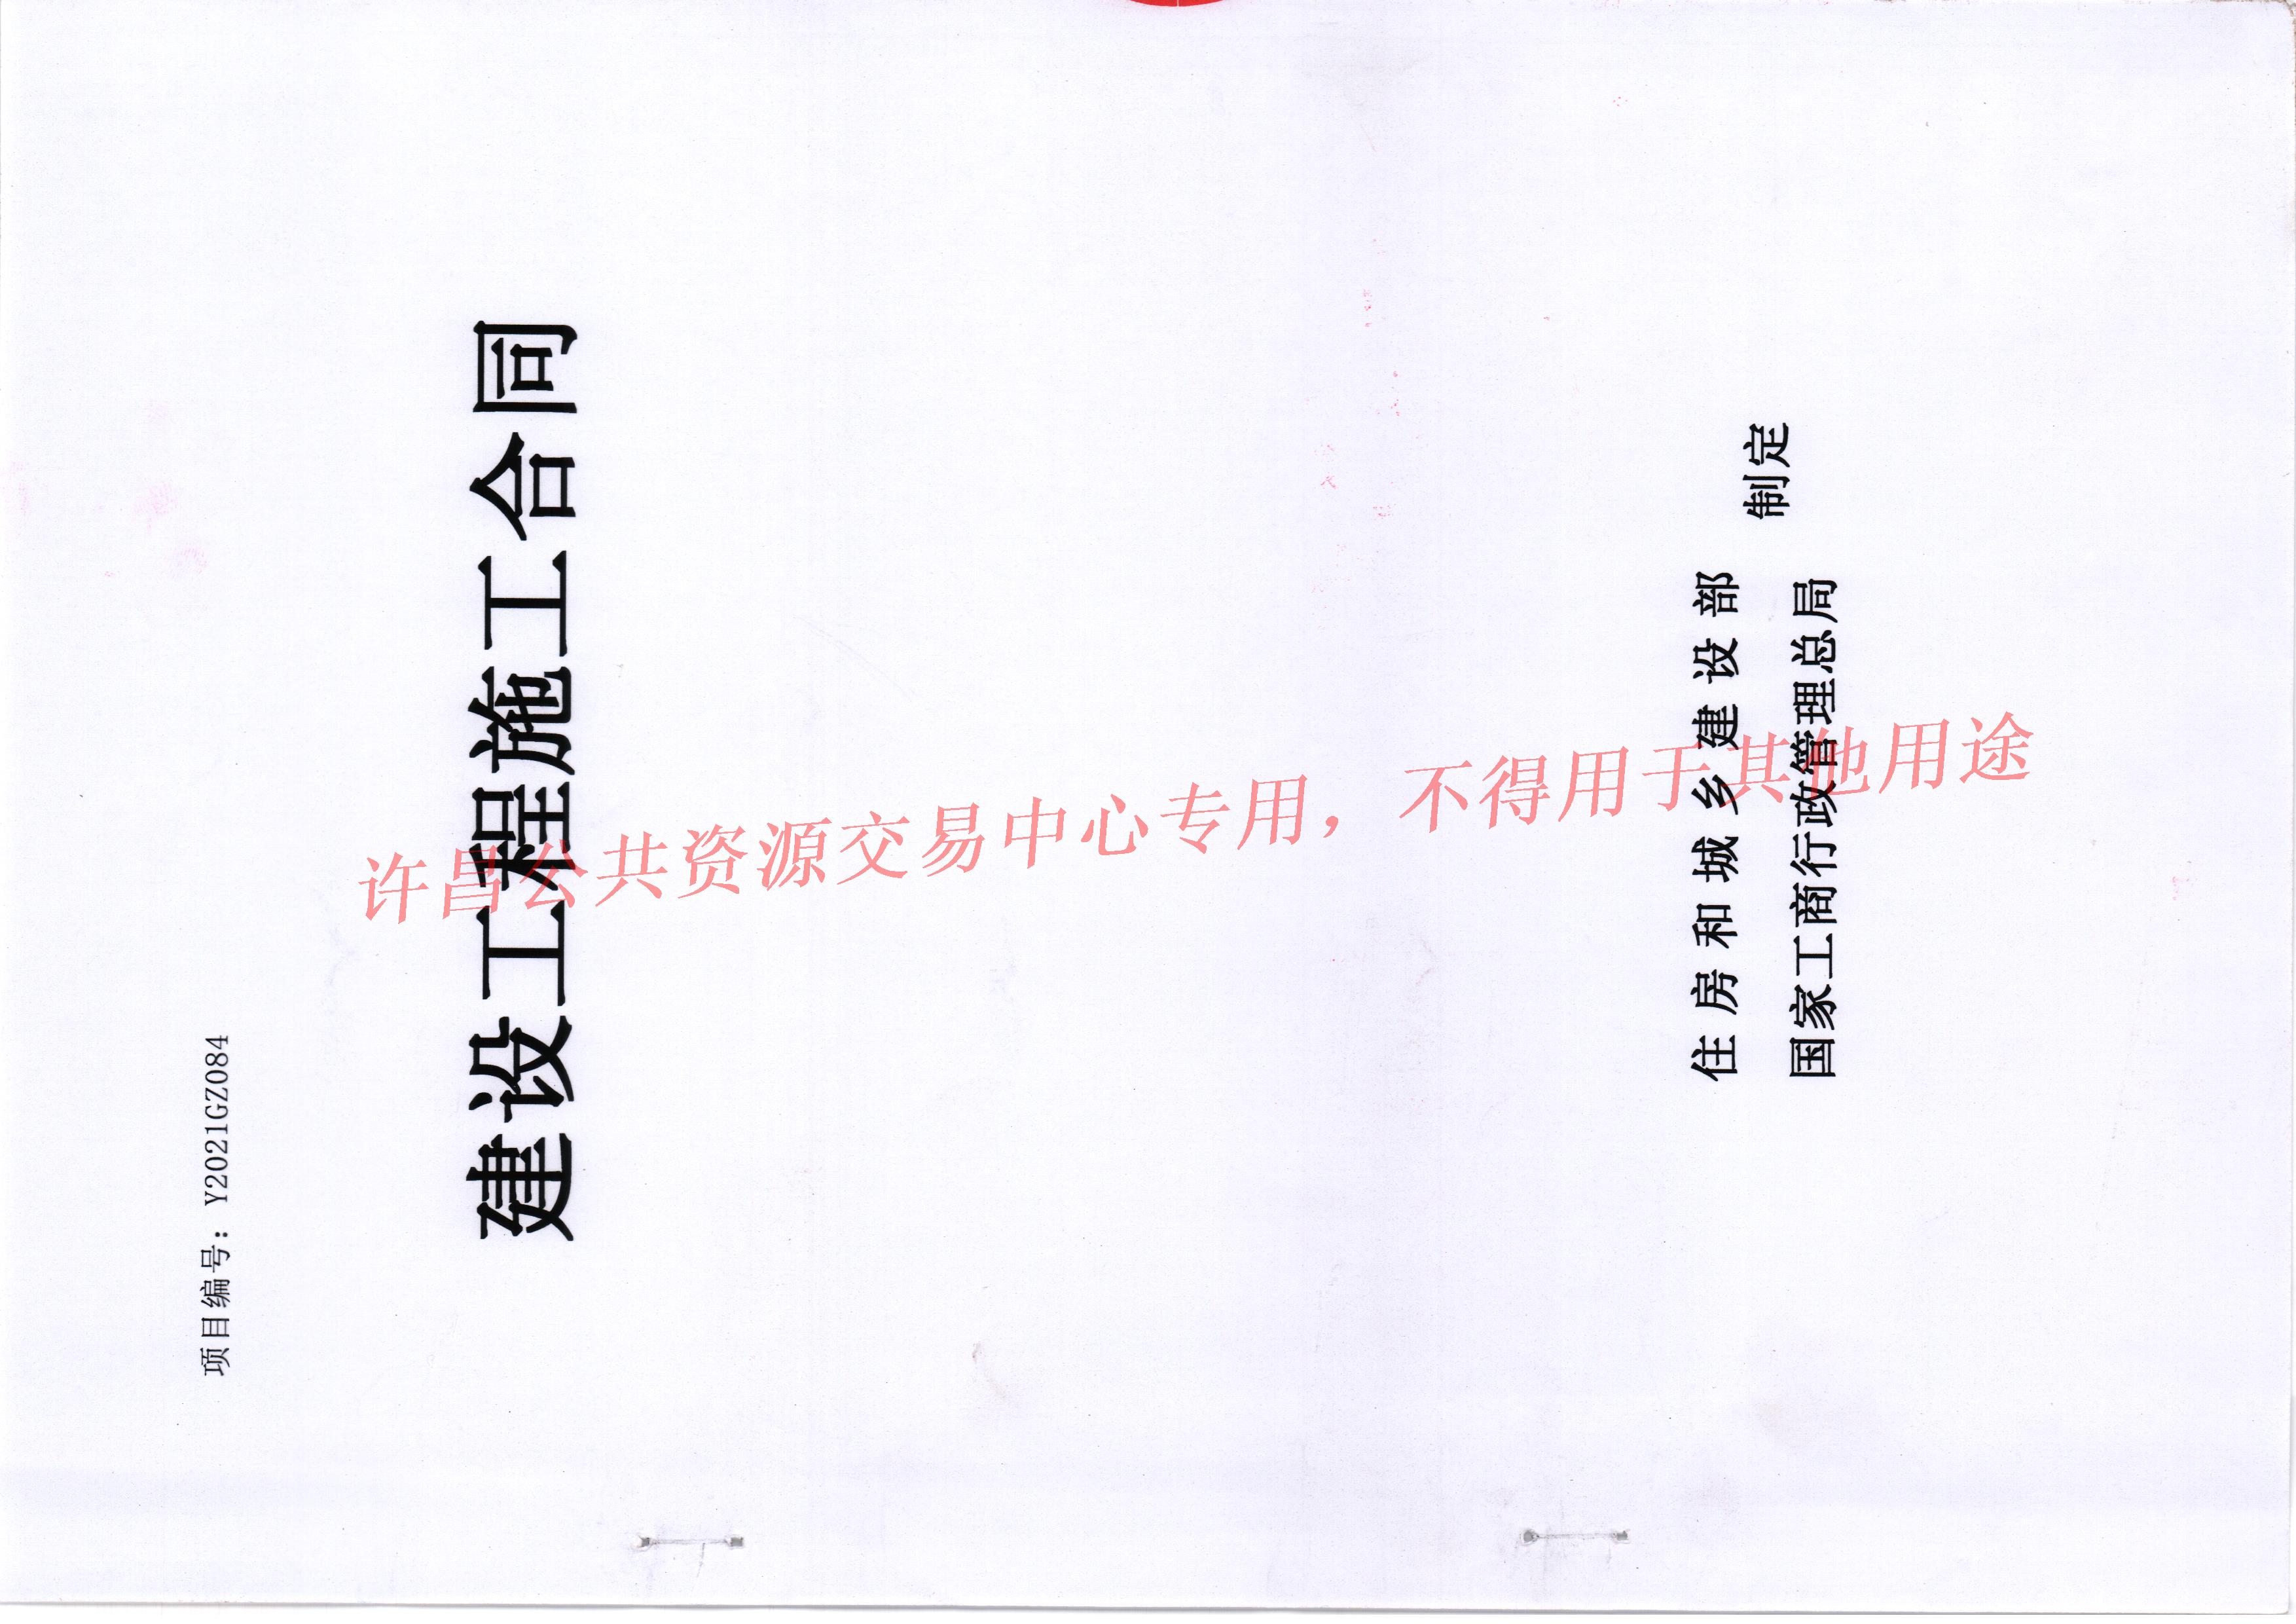 项目编号：Y2021GZ084
建设工程施工合同
住房和城乡建设部
制定
国家工商行政管理总局
许昌公共资源交易中心专用，不得用于其他用途